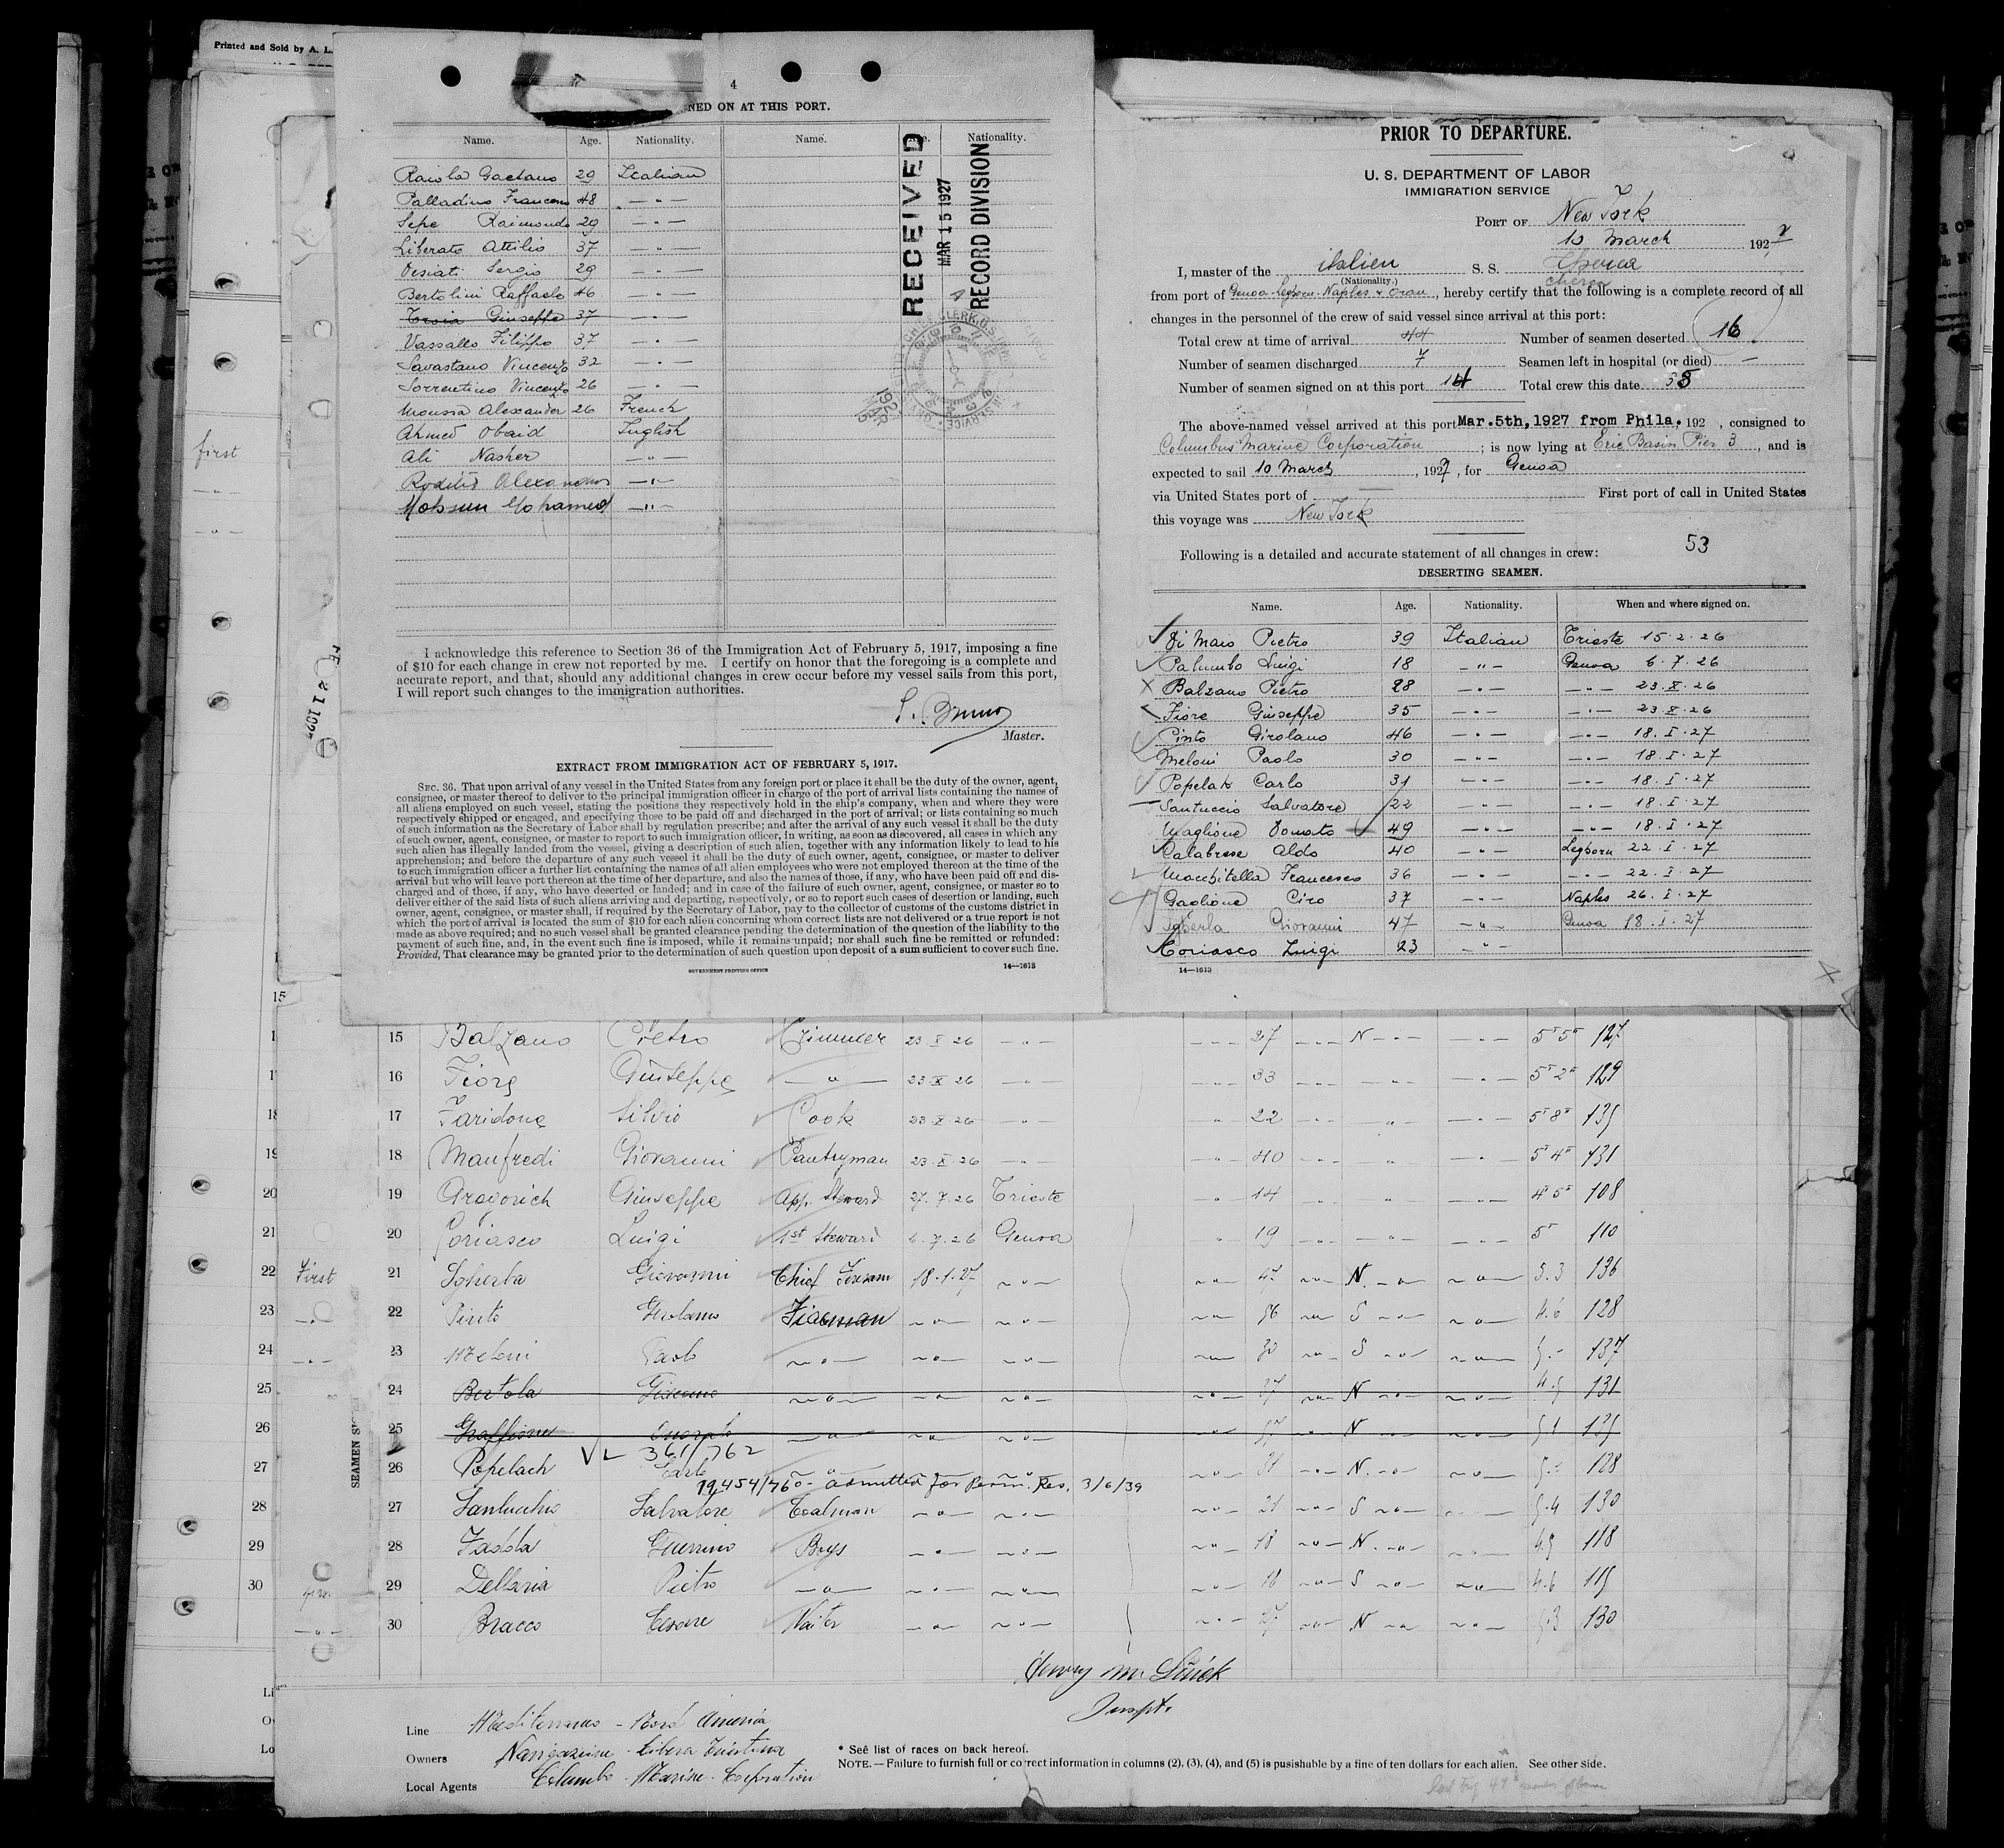 Printed and Sold by A. L.
4
NED ON AT THIS PORT.
Name. Age. Nationality. Name. Nationality.
Raiola Gaetano 29 Italian
Palladino Francesco 48 — " —
Sepe Raimondo 29 — " —
Liberato Attilio 37 — " —
Desiati Sergio 29 — " —
Bertolini Raffaele 46 — " —
Giuseppe 37 — " —
Vassallo Filippo 37 — " —
Savastano Vincenzo 32 — " —
Sorrentino Vincenzo 26 — " —
Moussa Alexander 26 French
Ahmed Obaid English
Ali Nasher — " —
Roditis Alexandros — " —
Mohsun Mohamed — " —
RECEIVED
MAR 15 1927
RECORD DIVISION
I acknowledge this reference to Section 36 of the Immigration Act of February 5, 1917, imposing a fine
of $10 for each change in crew not reported by me. I certify on honor that the foregoing is a complete and
accurate report, and that, should any additional changes in crew occur before my vessel sails from this port,
I will report such changes to the immigration authorities.
S. Bruno
Master.
EXTRACT FROM IMMIGRATION ACT OF FEBRUARY 5, 1917.
SEC. 36. That upon arrival of any vessel in the United States from any foreign port or place it shall be the duty of the owner, agent,
consignee, or master thereof to deliver to the principal immigration officer in charge of the port of arrival lists containing the names of
all aliens employed on such vessel, stating the positions they respectively hold in the ship's company, when and where they were
respectively shipped or engaged, and specifying those to be paid off and discharged in the port of arrival; or lists containing so much
of such information as the Secretary of Labor shall by regulation prescribe; and after the arrival of any such vessel it shall be the duty
of such owner, agent, consignee, or master to report to such immigration officer, in writing, as soon as discovered, all cases in which any
such alien has illegally landed from the vessel, giving a description of such alien, together with any information likely to lead to his
apprehension; and before the departure of any such vessel it shall be the duty of such owner, agent, consignee, or master to deliver
to such immigration officer a further list containing the names of all alien employees who were not employed thereon at the time of the
arrival but who will leave port thereon at the time of her departure, and also the names of those, if any, who have been paid off and dis-
charged and of those, if any, who have deserted or landed; and in case of the failure of such owner, agent, consignee, or master so to
deliver either of the said lists of such aliens arriving and departing, respectively, or so to report such cases of desertion or landing, such
owner, agent, consignee, or master shall, if required by the Secretary of Labor, pay to the collector of customs of the customs district in
which the port of arrival is located the sum of $10 for each alien concerning whom correct lists are not delivered or a true report is not
made as above required; and no such vessel shall be granted clearance pending the determination of the question of the liability to the
payment of such fine, and, in the event such fine is imposed, while it remains unpaid; nor shall such fine be remitted or refunded:
Provided, That clearance may be granted prior to the determination of such question upon deposit of a sum sufficient to cover such fine.
GOVERNMENT PRINTING OFFICE 14—1613
PRIOR TO DEPARTURE.
U. S. DEPARTMENT OF LABOR
IMMIGRATION SERVICE
PORT OF New York
10 March 1927
I, master of the italien S. S. Cherca
(Nationality.) cherca
from port of Genoa-Leghorn-Naples & Oran, hereby certify that the following is a complete record of all
changes in the personnel of the crew of said vessel since arrival at this port:
Total crew at time of arrival 44 Number of seamen deserted 16
Number of seamen discharged 7 Seamen left in hospital (or died) —
Number of seamen signed on at this port 14 Total crew this date 35
The above-named vessel arrived at this port Mar. 5th, 1927 from Phila. 192 , consigned to
Columbus Marine Corporation ; is now lying at Erie Basin Pier 3 , and is
expected to sail 10 March , 1927, for Genoa
via United States port of — First port of call in United States
this voyage was New York
53
Following is a detailed and accurate statement of all changes in crew:
DESERTING SEAMEN.
Name. Age. Nationality. When and where signed on.
Di Maio Pietro 39 Italian Trieste 15.2.26
Palumbo Luigi 18 — " — Genoa 6.7.26
Balzano Pietro 28 — " — — " — 23.X.26
Fiore Giuseppe 35 — " — — " — 23.X.26
Pinto Girolano 46 — " — — " — 18.I.27
Meloni Paolo 30 — " — — " — 18.I.27
Popelak Carlo 31 — " — — " — 18.I.27
Santuccio Salvatore 22 — " — — " — 18.I.27
Maglione Donato 49 — " — — " — 18.I.27
Calabrese Aldo 40 — " — Leghorn 22.I.27
Macchitella Francesco 36 — " — — " — 22.I.27
Gaglione Ciro 37 — " — Naples 26.I.27
Sgherla Giovanni 47 — " — Genoa 18.I.27
Coriasco Luigi 23 — " —
14—1613
first
15 Balzano Pietro Trimmer 23 X 26 — " — — " — 27 — " — N — " — — " — 5' 5" 127
16 Fiore Giuseppe — " — 23.X 26 — " — — " — 33 — " — — " — — " — 5' 2" 129
17 Faridone Silvio Cook 23.X.26 — " — — " — 22 — " — — " — — " — 5' 8" 135
18 Manfredi Giovanni Pantryman 23.X.26 — " — — " — 40 — " — — " — — " — 5' 4" 131
19 Dragovich Giuseppe App. Steward 27.7.26 Trieste — " — 14 — " — — " — — " — 4' 5" 108
20 Coriasco Luigi 1st Steward 6.7.26 Genoa — " — 19 — " — — " — — " — 5' 110
First 21 Sgherba Giovanni Chief Fireman 18.1.27 — " — — " — 47 — " — N. — " — — " — 5.3 136
22 Pinto Girolamo Fireman — " — — " — — " — 56 — " — S — " — — " — 4.6 128
23 Meloni Paolo — " — — " — — " — — " — 30 — " — S — " — — " — 5.- 137
24 Bertola Giacomo — " — — " — — " — — " — 37 — " — N — " — — " — 4.9 131
25 Graffione Onorato — " — — " — — " — — " — 37 — " — N — " — — " — 5.1 135
VL 361/762
26 Popelach Carlo — " — — " — — " — — " — 31 — " — N. — " — — " — 128
19454/760 - admitted for Perm. Res. 3/6/39
27 Santucchio Salvatore Coalman — " — — " — — " — 21 — " — S — " — 5.4 130
28 Fadda Guerrino Boys — " — — " — — " — 18 — " — N. — " — — " — 4.9 118
29 Dellavia Pietro — " — — " — — " — — " — 18 — " — S — " — — " — 4.6 115
30 Bracco Cesare Waiter — " — — " — — " — 27 — " — N — " — — " — 5.3 130
Henry M. Slick
Inspt.
Line Mediterraneo - Nord America
Owners Navigazione Libera Triestina
Local Agents Columbus Marine Corporation
* See list of races on back hereof.
NOTE.—Failure to furnish full or correct information in columns (2), (3), (4), and (5) is punishable by a fine of ten dollars for each alien. See other side.